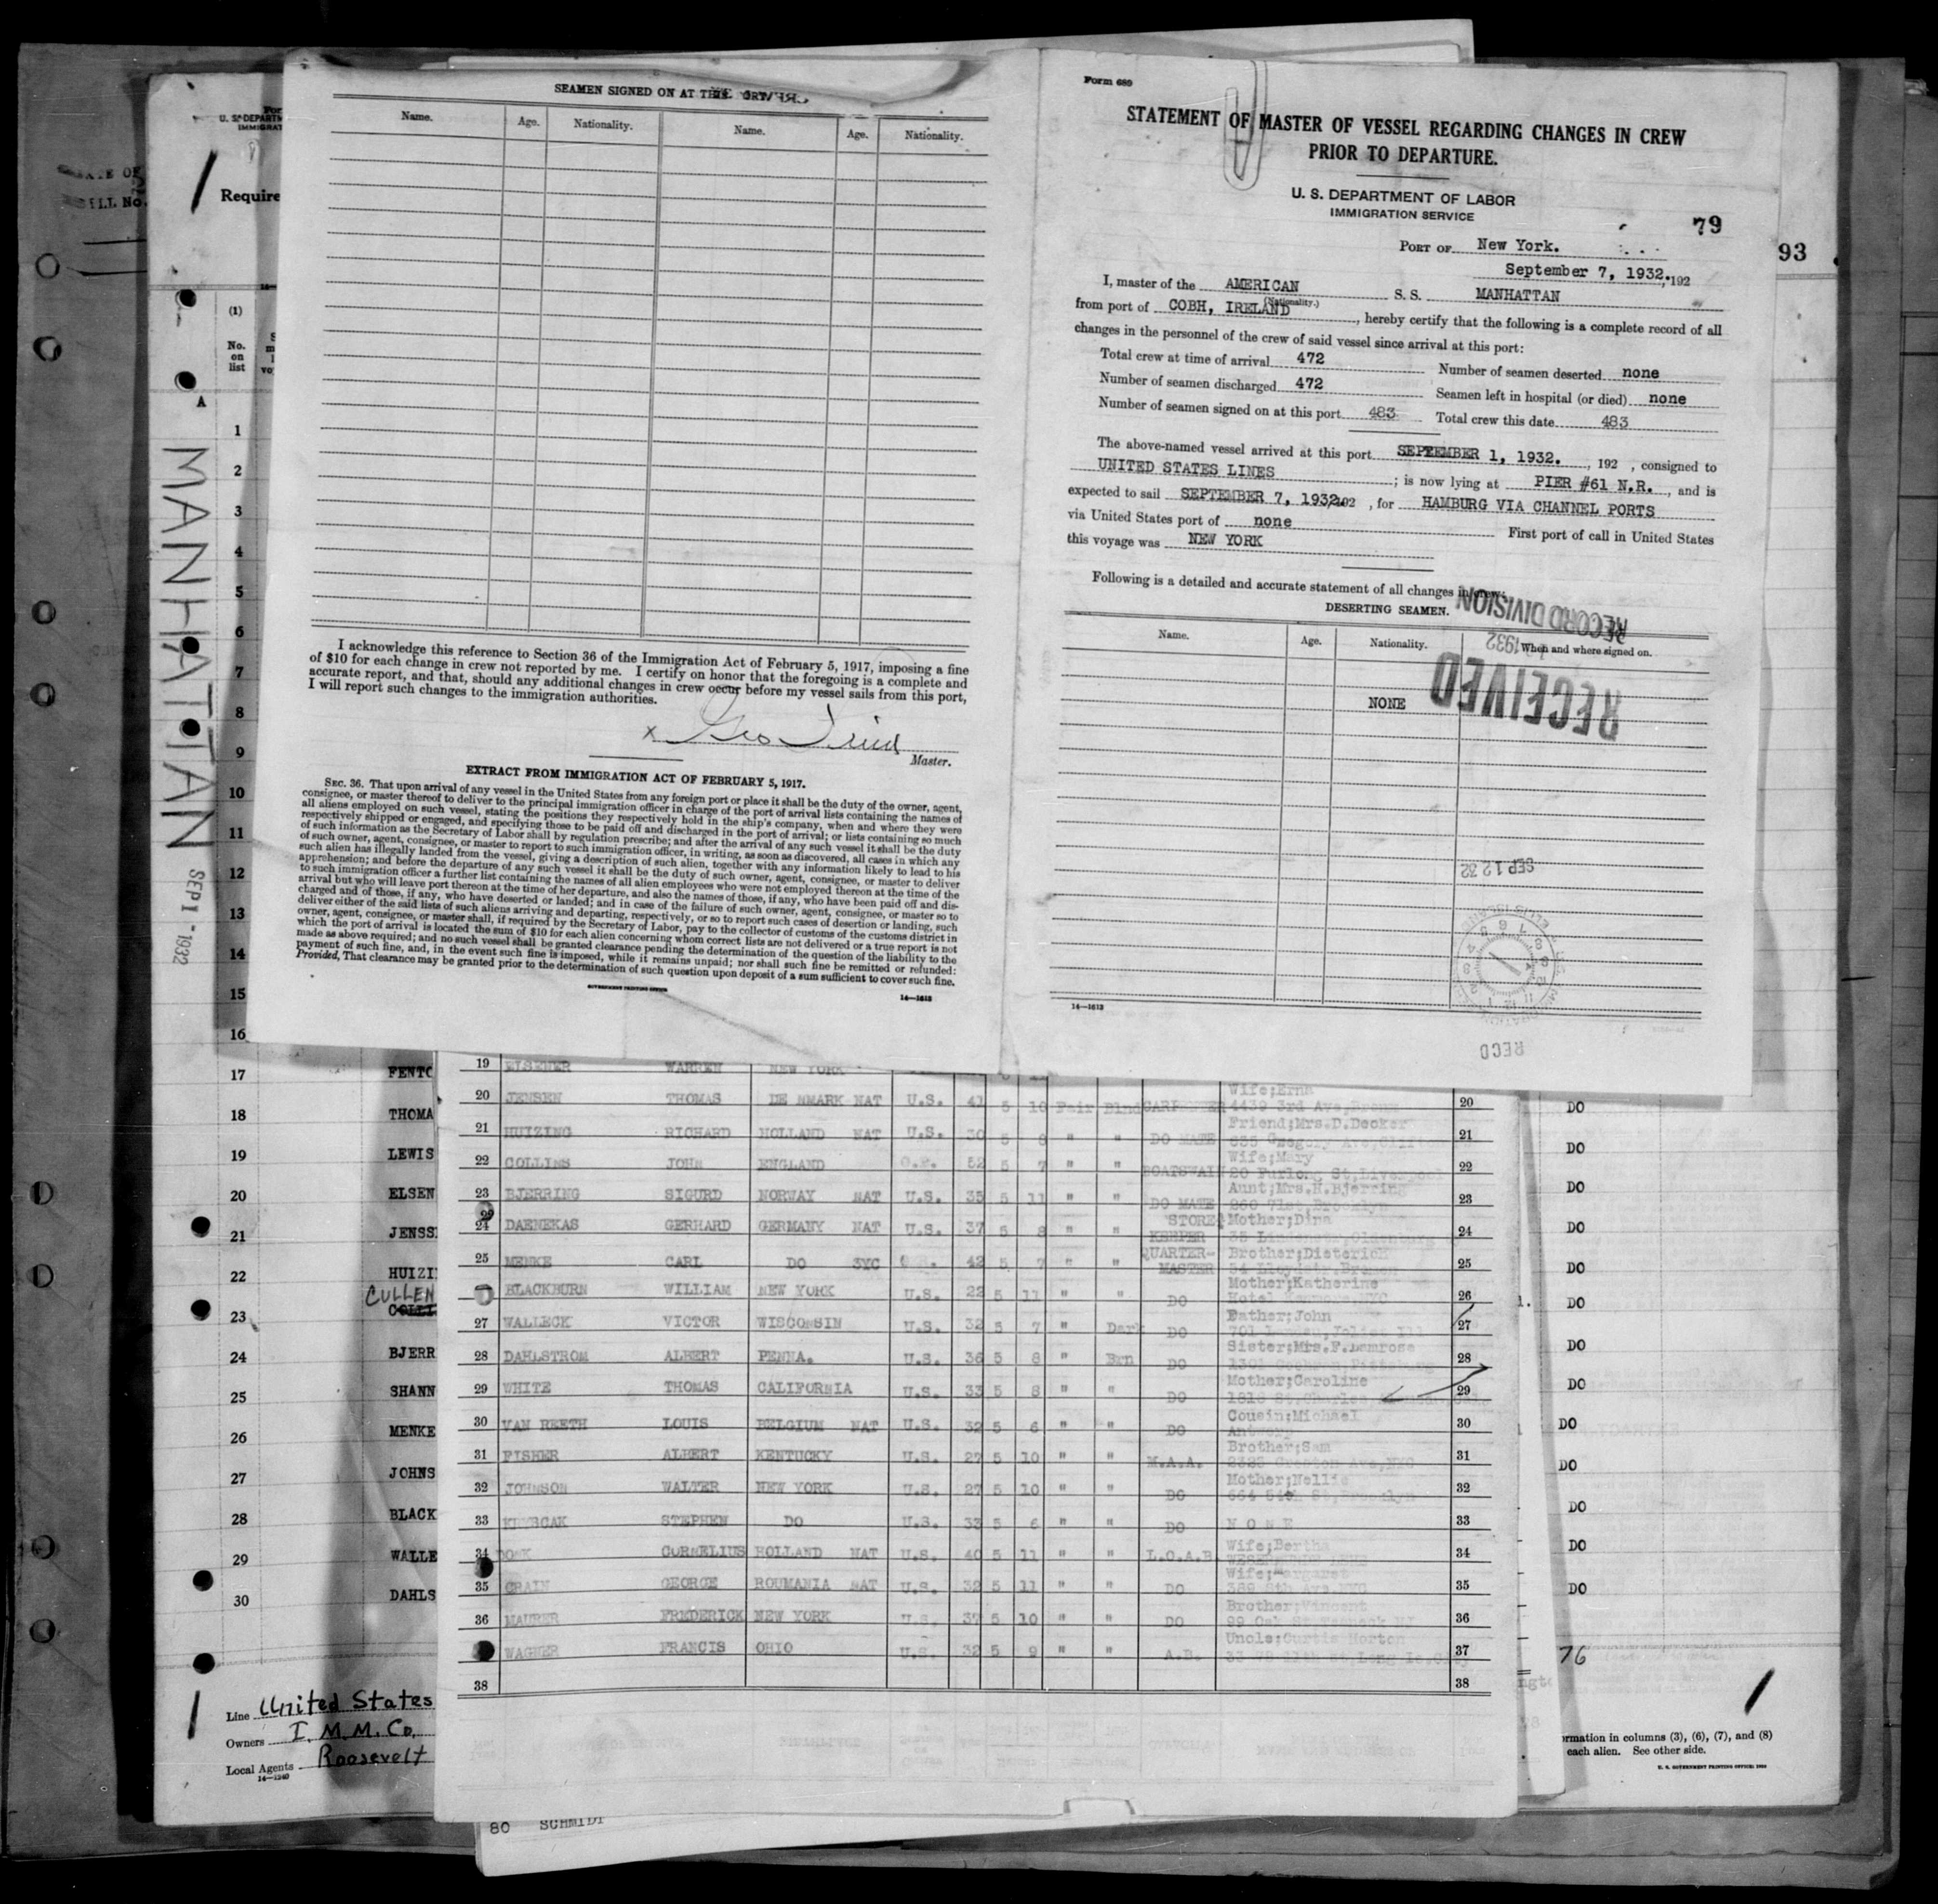 SEAMEN SIGNED ON AT THIS PORT
Name. Age. Nationality. Name. Age. Nationality.
I acknowledge this reference to Section 36 of the Immigration Act of February 5, 1917, imposing a fine
of $10 for each change in crew not reported by me. I certify on honor that the foregoing is a complete and
accurate report, and that, should any additional changes in crew occur before my vessel sails from this port,
I will report such changes to the immigration authorities.
x Geo
Master.
EXTRACT FROM IMMIGRATION ACT OF FEBRUARY 5, 1917.
SEC. 36. That upon arrival of any vessel in the United States from any foreign port or place it shall be the duty of the owner, agent,
consignee, or master thereof to deliver to the principal immigration officer in charge of the port of arrival lists containing the names of
all aliens employed on such vessel, stating the positions they respectively hold in the ship's company, when and where they were
respectively shipped or engaged, and specifying those to be paid off and discharged in the port of arrival; or lists containing so much
of such information as the Secretary of Labor shall by regulation prescribe; and after the arrival of any such vessel it shall be the duty
of such owner, agent, consignee, or master to report to such immigration officer, in writing, as soon as discovered, all cases in which any
such alien has illegally landed from the vessel, giving a description of such alien, together with any information likely to lead to his
apprehension; and before the departure of any such vessel it shall be the duty of such owner, agent, consignee, or master to deliver
to such immigration officer a further list containing the names of all alien employees who were not employed thereon at the time of the
arrival but who will leave port thereon at the time of her departure, and also the names of those, if any, who have been paid off and dis-
charged and of those, if any, who have deserted or landed; and in case of the failure of such owner, agent, consignee, or master so to
deliver either of the said lists of such aliens arriving and departing, respectively, or so to report such cases of desertion or landing, such
owner, agent, consignee, or master shall, if required by the Secretary of Labor, pay to the collector of customs of the customs district in
which the port of arrival is located the sum of $10 for each alien concerning whom correct lists are not delivered or a true report is not
made as above required; and no such vessel shall be granted clearance pending the determination of the question of the liability to the
payment of such fine, and, in the event such fine is imposed, while it remains unpaid; nor shall such fine be remitted or refunded:
Provided, That clearance may be granted prior to the determination of such question upon deposit of a sum sufficient to cover such fine.
GOVERNMENT PRINTING OFFICE
14—1613
Form 689
STATEMENT OF MASTER OF VESSEL REGARDING CHANGES IN CREW
PRIOR TO DEPARTURE.
U. S. DEPARTMENT OF LABOR
IMMIGRATION SERVICE
79
PORT OF New York.
September 7, 1932, 192
I, master of the AMERICAN S. S. MANHATTAN
(Nationality.)
from port of COBH, IRELAND, hereby certify that the following is a complete record of all
changes in the personnel of the crew of said vessel since arrival at this port:
Total crew at time of arrival 472 Number of seamen deserted none
Number of seamen discharged 472 Seamen left in hospital (or died) none
Number of seamen signed on at this port 483 Total crew this date 483
The above-named vessel arrived at this port SEPTEMBER 1, 1932., 192 , consigned to
UNITED STATES LINES ; is now lying at PIER #61 N.R., and is
expected to sail SEPTEMBER 7, 1932 192 , for HAMBURG VIA CHANNEL PORTS
via United States port of none First port of call in United States
this voyage was NEW YORK
Following is a detailed and accurate statement of all changes in crew:
DESERTING SEAMEN.
RECORD DIVISION
1932
RECEIVED
Name. Age. Nationality. When and where signed on.
NONE
SEP 12 32
14—1613
RECD
93
U. S. DEPARTM
IMMIGRAT
Require
(1)
No.
on
list
A
MANHATTAN
SEP 1 - 1932
1
2
3
4
5
6
7
8
9
10
11
12
13
14
15
16
17 FENTO
18 THOMA
19 LEWIS
20 ELSEN
21 JENSS
22 HUIZI
CULLEN
23
24 BJERR
25 SHANN
26 MENKE
27 JOHNS
28 BLACK
29 WALLE
30 DAHLS
19 WARREN NEW YORK
Wife;Erna
20 JENSEN THOMAS DENMARK NAT U.S. 41 5 10 Fair Blnd CARPENTER 4439 3rd Ave, Bronx 20
Friend;Mrs.D.Decker
21 HUIZING RICHARD HOLLAND NAT U.S. 30 5 8 " " DO MATE Gregory Ave, 21
Wife;Mary
22 COLLINS JOHN ENGLAND 52 5 7 " " BOATSWAIN 20 Furlong St, Liverpool 22
Aunt;Mrs.H.Bjerring
23 BJERRING SIGURD NORWAY NAT U.S. 35 5 11 " " DO MATE 71st, Brooklyn 23
STORE Mother;Dina
24 DAENEKAS GERHARD GERMANY NAT U.S. 37 5 8 " " KEEPER 24
QUARTER- Brother;Dieterich
25 MENKE CARL DO 42 5 7 " " MASTER Bremen 25
Mother;Katherine
BLACKBURN WILLIAM NEW YORK U.S. 22 5 11 " " DO Hotel NYC 26
Father;John
27 WALLECK VICTOR WISCONSIN U.S. 32 5 7 " Dark DO Joliet Ill 27
28 DAHLSTROM ALBERT PENNA. U.S. 36 5 8 " Brn DO 28
Mother;Caroline
29 WHITE THOMAS CALIFORNIA U.S. 33 5 8 " " DO 29
Cousin;Michael
30 VAN REETH LOUIS BELGIUM NAT U.S. 32 5 6 " " DO Antwerp 30
Brother;Sam
31 FISHER ALBERT KENTUCKY U.S. 27 5 10 " " M.A.A. Creston Ave, NYC 31
Mother;Nellie
32 JOHNSON WALTER NEW YORK U.S. 27 5 10 " " DO 664 54th St, Brooklyn 32
33 STEPHEN DO U.S. 33 5 6 " " DO N O N E 33
Wife;Bertha
34 CORNELIUS HOLLAND NAT U.S. 40 5 11 " " 34
Wife;Margaret
35 CRAIN GEORGE ROUMANIA NAT U.S. 32 5 11 " " DO 8th Ave, NYC 35
Brother;Vincent
36 MAURER FREDERICK NEW YORK U.S. 37 5 10 " " DO 99 Oak St 36
Uncle;Curtis Horton
WAGNER FRANCIS OHIO U.S. 32 5 9 " " A.B. 37
38 38
DO
DO
DO
DO
DO
DO
DO
DO
DO
DO
DO
DO
DO
76
Line United States
Owners I. M. M. Co.
Local Agents Roosevelt
14—1240
ormation in columns (3), (6), (7), and (8)
each alien. See other side.
80 SCHMIDT